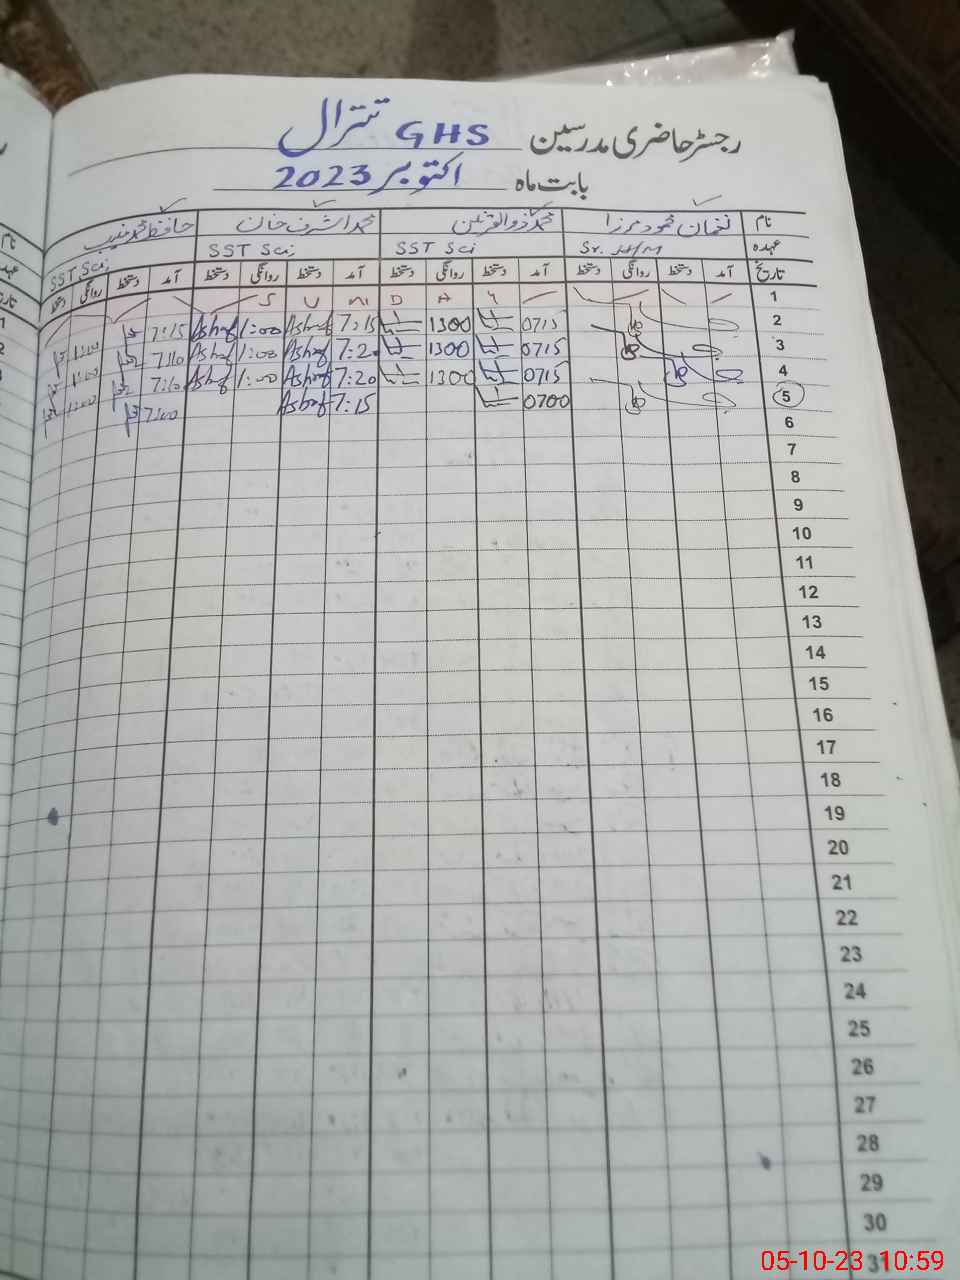 رجسٹر حاضری مدرسین GHS تترال
بابت ماہ اکتوبر 2023
نام نعمان محمود مرزا محمد ذوالقرنین محمد اشرف خان حافظ محمد منیب
عہدہ SST Sci SST Sci SST Sci
تاریخ آمد دستخط روانگی دستخط آمد دستخط روانگی دستخط آمد دستخط روانگی دستخط آمد دستخط روانگی دستخط
1 S U N D A Y
2 0715 1300 7:15 Ashraf 1:00 Ashraf 7:15 1:00
3 0715 1300 7:20 Ashraf 1:00 Ashraf 7:10 1:00
4 0715 1300 7:20 Ashraf 1:00 Ashraf 7:10 1:00
5 0700 7:15 Ashraf 7:00
6
7
8
9
10
11
12
13
14
15
16
17
18
19
20
21
22
23
24
25
26
27
28
29
30
31
05-10-23 10:59